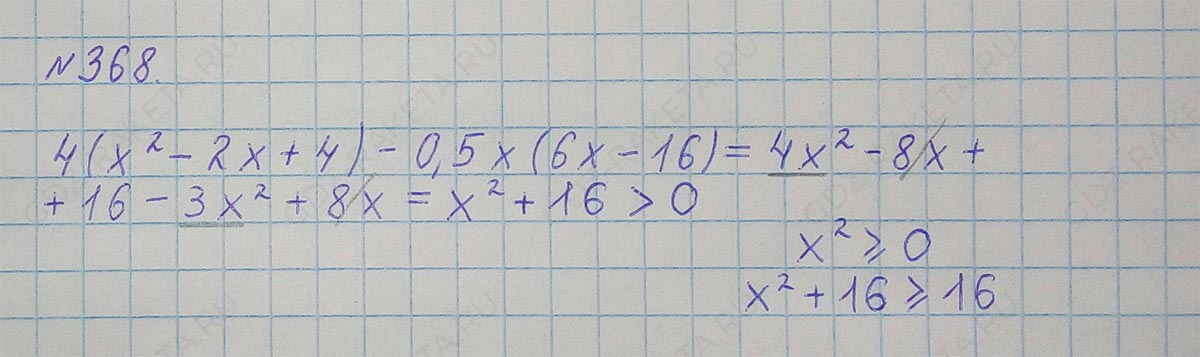 №368.
4(x² - 2x + 4) - 0,5x(6x - 16) = 4x² - 8x +
+ 16 - 3x² + 8x = x² + 16 > 0
x² ⩾ 0
x² + 16 ⩾ 16